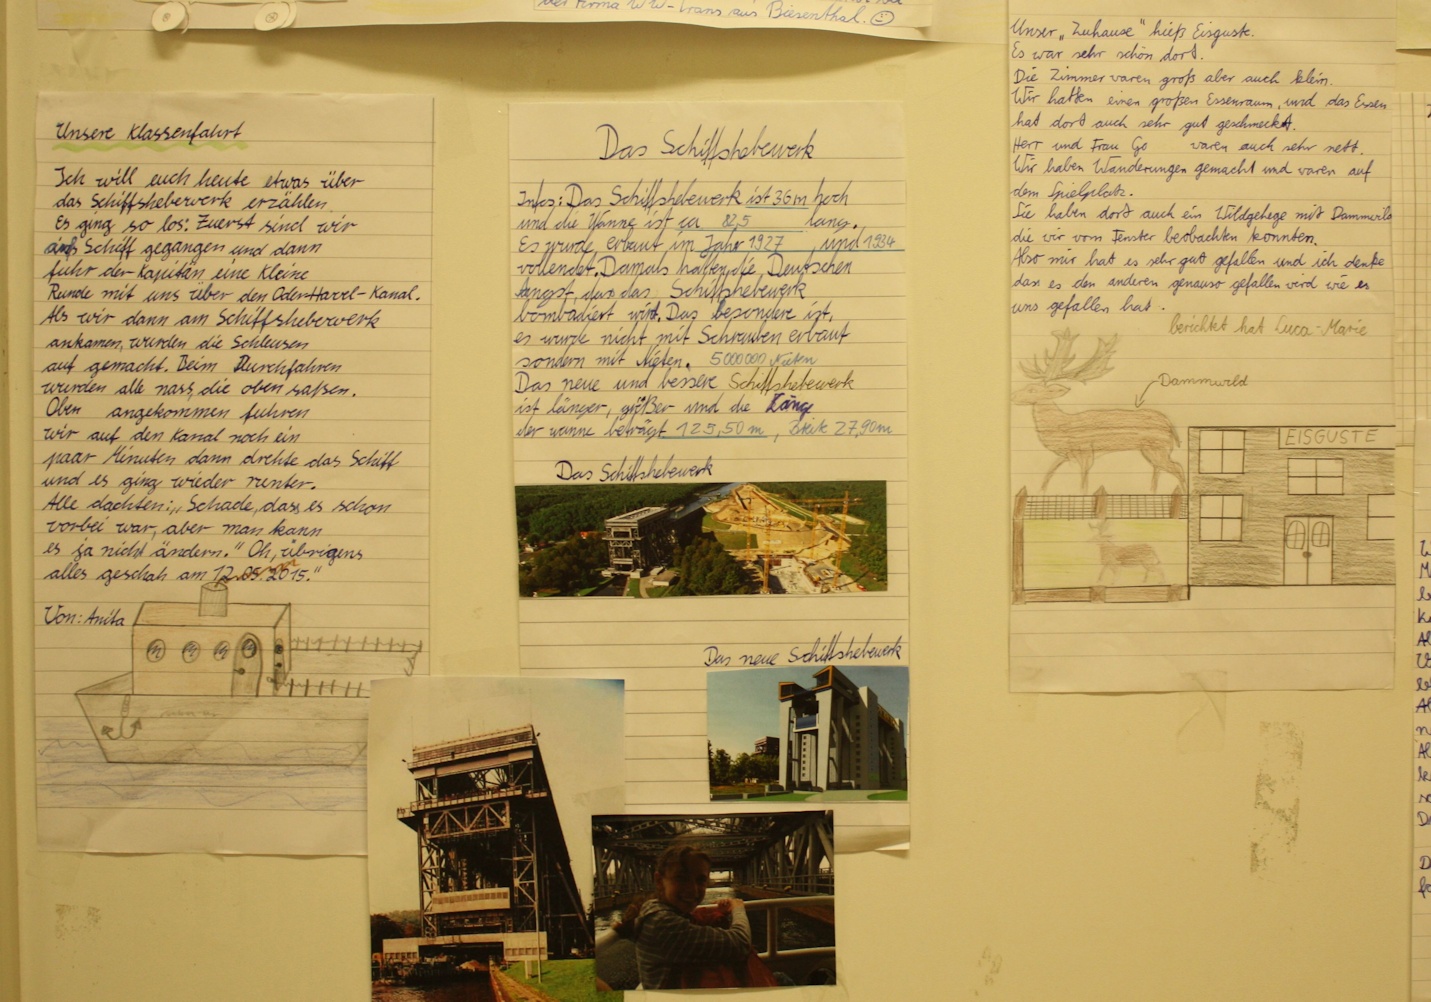 der Firma WW-Trans aus Biesenthal.
Unsere Klassenfahrt
Ich will euch heute etwas über
das Schiffsheberwerk erzählen
Es ging so los: Zuerst sind wir
aufs Schiff gegangen und dann
fuhr der Kapitän eine kleine
Runde mit uns über den Oder Havel-Kanal.
Als wir dann am Schiffsheberwerk
ankamen, wurden die Schleusen
auf gemacht. Beim Durchfahren
wurden alle nass, die oben saßen.
Oben angekommen fuhren
wir auf den Kanal noch ein
paar Minuten dann drehte das Schiff
und es ging wieder runter.
Alle dachten: „Schade, dass es schon
vorbei war, aber man kann
es ja nicht ändern." Oh, übrigens
alles geschah am 12.05.2015."
Von: Anita
Das Schiffshebewerk
Infos: Das Schiffshebewerk ist 36 m hoch
und die Wanne ist ca 82,5 lang.
Es wurde erbaut im Jahr 1927, und 1934
vollendet. Damals hatten die Deutschen
Angst, das das Schiffshebewerk
bombadiert wird. Das besondere ist,
es wurde nicht mit Schrauben erbaut
sondern mit Nieten. 5000000 Nieten
Das neue und bessere Schiffshebewerk
ist länger, größer und die Länge
der wanne beträgt 125,50 m, Breite 27,90m
Das Schiffshebewerk
Das neue Schiffshebewerk
Unser „Zuhause" hieß Eisguste.
Es war sehr schön dort.
Die Zimmer waren groß aber auch klein.
Wir hatten einen großen Essenraum, und das Essen
hat dort auch sehr gut geschmeckt.
Herr und Frau Go waren auch sehr nett.
Wir haben Wanderungen gemacht und waren auf
dem Spielplatz.
Sie haben dort auch ein Wildgehege mit Dammwild
die wir vom Fenster beobachten konnten.
Also mir hat es sehr gut gefallen und ich denke
das es den anderen genauso gefallen wird wie es
uns gefallen hat.
berichtet hat Luca-Marie
Dammwild
EISGUSTE